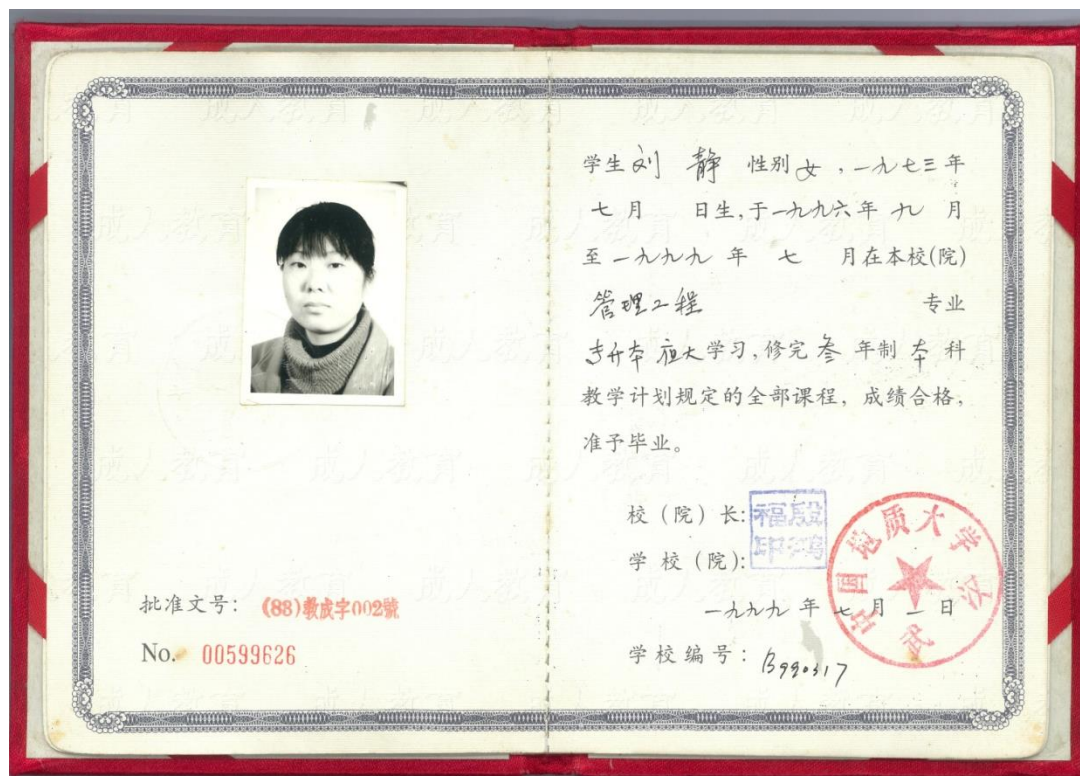 批准文号： (88)教成字002號
No. 00599626
学生 刘 静 性别 女，一九七三年
七月 日生,于一九九六年 九 月
至一九九九 年 七 月在本校(院)
管理工程 专业
专升本 夜大学习,修完 叁 年制 本 科
教学计划规定的全部课程，成绩合格，
准予毕业。
校（院）长: 殷鸿福印
学 校（院）:
中国地质大学
武汉
一九九九 年 七 月 一 日
学校编号： B990317
成人教育